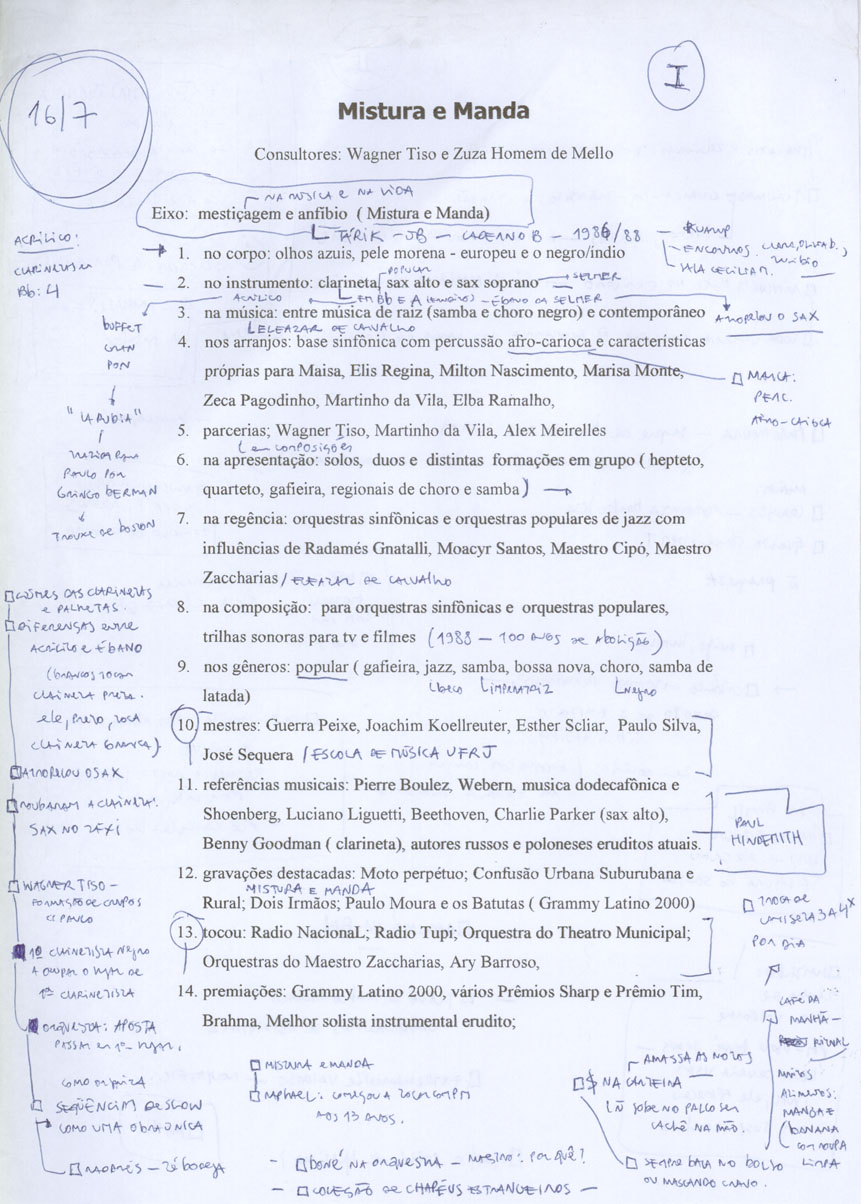 16/7
I
Mistura e Manda
Consultores: Wagner Tiso e Zuza Homem de Mello
NA MÚSICA E NA VIDA
Eixo: mestiçagem e anfíbio ( Mistura e Manda)
TÁRIK - JB - CADERNO B - 1986/88
ACRÍLICO:
CLARINETAS EM
Bb: 4
1. no corpo: olhos azuis, pele morena - europeu e o negro/índio
SALA CECILIA M.
POPULAR
2. no instrumento: clarineta, sax alto e sax soprano
SELMER
ACRÍLICO
EM BB E A - ÉBANO DA SELMER
3. na música: entre música de raiz (samba e choro negro) e contemporâneo
ATROPELOU O SAX
ELEAZAR DE CARVALHO
4. nos arranjos: base sinfônica com percussão afro-carioca e características
próprias para Maisa, Elis Regina, Milton Nascimento, Marisa Monte,
Zeca Pagodinho, Martinho da Vila, Elba Ramalho,
MARCA:
PERC.
AFRO-CARIOCA
BUFFET
CRAM
PON
5. parcerias; Wagner Tiso, Martinho da Vila, Alex Meirelles
em composições
6. na apresentação: solos, duos e distintas formações em grupo ( hepteto,
quarteto, gafieira, regionais de choro e samba)
"LA RUBIA"
TRAZIDA PARA
PAULO POR
GRINGO GERMAN
TROUXE DE BOSTON
7. na regência: orquestras sinfônicas e orquestras populares de jazz com
influências de Radamés Gnatalli, Moacyr Santos, Maestro Cipó, Maestro
Zaccharias / ELEAZAR DE CARVALHO
8. na composição: para orquestras sinfônicas e orquestras populares,
trilhas sonoras para tv e filmes (1988 - 100 ANOS DE ABOLIÇÃO)
9. nos gêneros: popular ( gafieira, jazz, samba, bossa nova, choro, samba de
latada)
IMPERATRIZ
Negro
NOMES DAS CLARINETAS
e PALHETAS.
DIFERENÇAS ENTRE
ACRÍLICO E ÉBANO
(BRANCOS TOCAM
CLARINETA PRETA.
ele, preto, toca
CLARINETA BRANCA)
ATROPELOU O SAX
ROUBARAM A CLARINETA!
SAX NO TÁXI
10. mestres: Guerra Peixe, Joachim Koellreuter, Esther Scliar, Paulo Silva,
José Sequera / ESCOLA DE MÚSICA UFRJ
11. referências musicais: Pierre Boulez, Webern, musica dodecafônica e
Shoenberg, Luciano Liguetti, Beethoven, Charlie Parker (sax alto),
Benny Goodman ( clarineta), autores russos e poloneses eruditos atuais.
PAUL
HINDEMITH
12. gravações destacadas: Moto perpétuo; Confusão Urbana Suburubana e
MISTURA E MANDA
Rural; Dois Irmãos; Paulo Moura e os Batutas ( Grammy Latino 2000)
13. tocou: Radio NacionaL; Radio Tupi; Orquestra do Theatro Municipal;
Orquestras do Maestro Zaccharias, Ary Barroso,
14. premiações: Grammy Latino 2000, vários Prêmios Sharp e Prêmio Tim,
Brahma, Melhor solista instrumental erudito;
WAGNER TISO -
FORMAÇÃO DE GRUPOS
C/ PAULO
1º CLARINETISTA Negro
A ocupar o lugar de
1º CLARINETISTA
ORQUESTRA: APOSTA
PASSAR EM 1º lugar.
COMO ORGANIZA
SEQÜÊNCIA DE SHOW
COMO UMA OBRA ÚNICA
RADAMÉS - Zé bodega
TROCA DE
CAMISETA 3 A 4X
POR DIA
CAFÉ DA
MANHÃ -
RITUAL
MUITOS
ALIMENTOS:
MANGA E
BANANA
COM ROUPA
LIMPA
MISTURA E MANDA
RAPHAEL: COMEÇOU A TOCAR COM PM
AOS 13 ANOS.
AMASSA AS NOTAS
$ NA CARTEIRA
Ñ sobe NO PALCO SEM
CACHÊ NA MÃO.
SEMPRE BALA NO BOLSO
OU MASCANDO CRAVO.
- BONÉ NA ORQUESTRA - MAESTRO: POR QUÊ?
- COLEÇÃO DE CHAPÉUS ESTRANGEIROS -